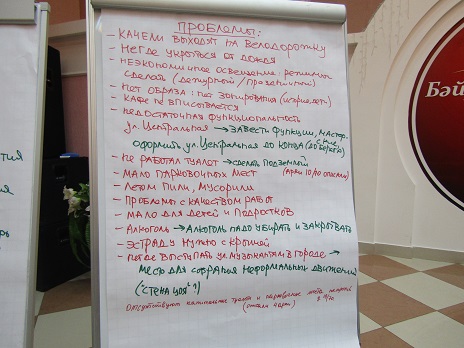 ПРОБЛЕМЫ:
- КАЧЕЛИ ВЫХОДЯТ НА ВЕЛОДОРОЖКУ
- НЕГДЕ УКРЫТЬСЯ ОТ ДОЖДЯ
- НЕЭКОНОМИЧНОЕ ОСВЕЩЕНИЕ: режимы
СДЕЛАТЬ (ДЕЖУРНЫЙ / ПРАЗДНИЧНЫЙ)
- НЕТ ОБРАЗА: НЕТ ЗОНИРОВАНИЯ
- КАФЕ НЕ ВПИСЫВАЕТСЯ
- НЕДОСТАТОЧНАЯ ФУНКЦИОНАЛЬНОСТЬ
УЛ. ЦЕНТРАЛЬНАЯ → ЗАВЕСТИ ФУНКЦИИ, МАСТЕР-
ОФОРМИТЬ УЛ. ЦЕНТРАЛЬНАЯ ДО КОНЦА
- НЕ РАБОТАЛ ТУАЛЕТ → СДЕЛАТЬ ПОДЗЕМНЫЙ
- МАЛО ПАРКОВОЧНЫХ МЕСТ
- ЛЕТОМ ПИЛИ, МУСОРИЛИ
- ПРОБЛЕМЫ С КАЧЕСТВОМ РАБОТ
- МАЛО ДЛЯ ДЕТЕЙ И ПОДРОСТКОВ
- АЛКОГОЛЬ → АЛКОГОЛЬ НАДО УБИРАТЬ И ЗАКРЫВАТЬ
- ЭСТРАДУ НУЖНО С КРЫШЕЙ
- НЕГДЕ ВЫСТУПАТЬ УЛ. МУЗЫКАНТАМ В ГОРОДЕ →
МЕСТО ДЛЯ СОБРАНИЯ НЕФОРМАЛЬНЫХ ДВИЖЕНИЙ
("СТЕНА ЦОЯ"?)
Отсутствуют туалет и парковочные места
Бай